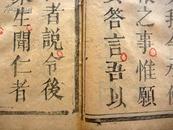 今
之事惟願
女答言吾以
者說令後
生聞仁者